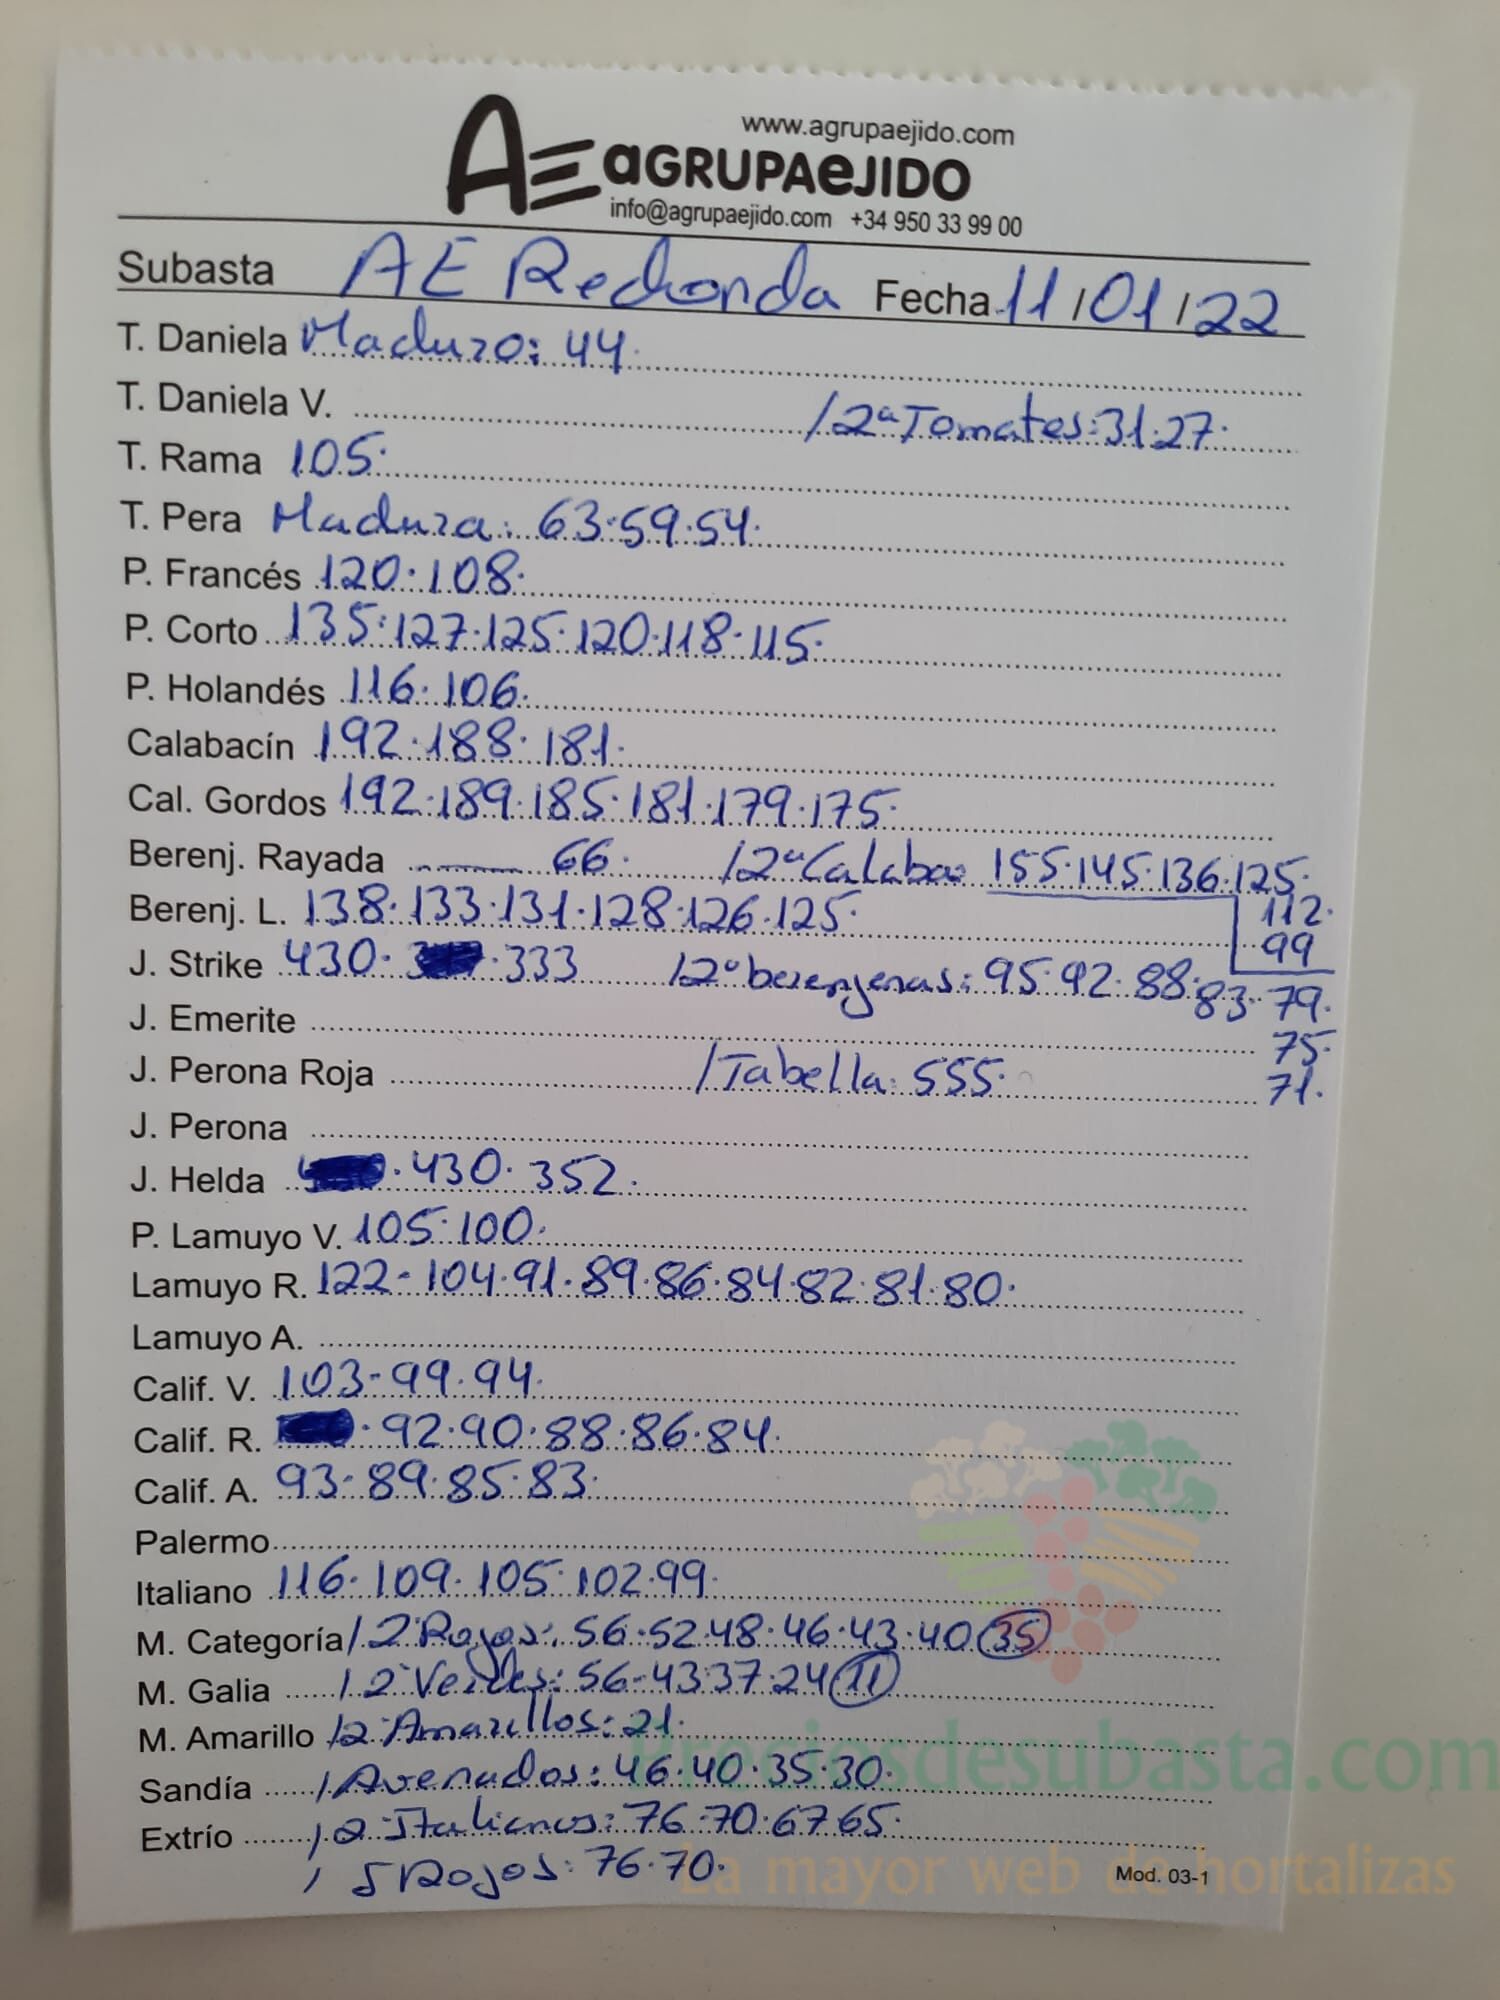 www.agrupaejido.com
AE aGRUPAeJIDO
info@agrupaejido.com +34 950 33 99 00
Subasta AE Redonda Fecha 11/01/22
T. Daniela Maduro: 44.
T. Daniela V. /2ª Tomates: 31.27.
T. Rama 105.
T. Pera Madura: 63.59.54.
P. Francés 120.108.
P. Corto 135.127.125.120.118.115.
P. Holandés 116.106.
Calabacín 192.188.181.
Cal. Gordos 192.189.185.181.179.175.
Berenj. Rayada 66. /2ª Calaba 155.145.136.125.
112.
Berenj. L. 138.133.131.128.126.125.
99
J. Strike 430. 333 /2ª berenjenas: 95.92.88.83.79.
J. Emerite 75.
J. Perona Roja /Tabella: 555. 71.
J. Perona
J. Helda 430.352.
P. Lamuyo V. 105.100.
Lamuyo R. 122-104.91.89.86.84.82.81.80.
Lamuyo A.
Calif. V. 103-99.94.
Calif. R. .92.90.88.86.84.
Calif. A. 93.89.85.83.
Palermo
Italiano 116.109.105.102.99.
M. Categoría /2 Rojos: 56.52.48.46.43.40 35
M. Galia /2 Verdes: 56-43.37.24 11
M. Amarillo /2 Amarillos: 21.
Sandía /Asenados: 46.40.35.30.
Extrío /2 Italianos: 76.70.67.65.
/ 5 Rojos: 76.70.
Mod. 03-1
Preciosdesubasta.com
La mayor web de hortalizas